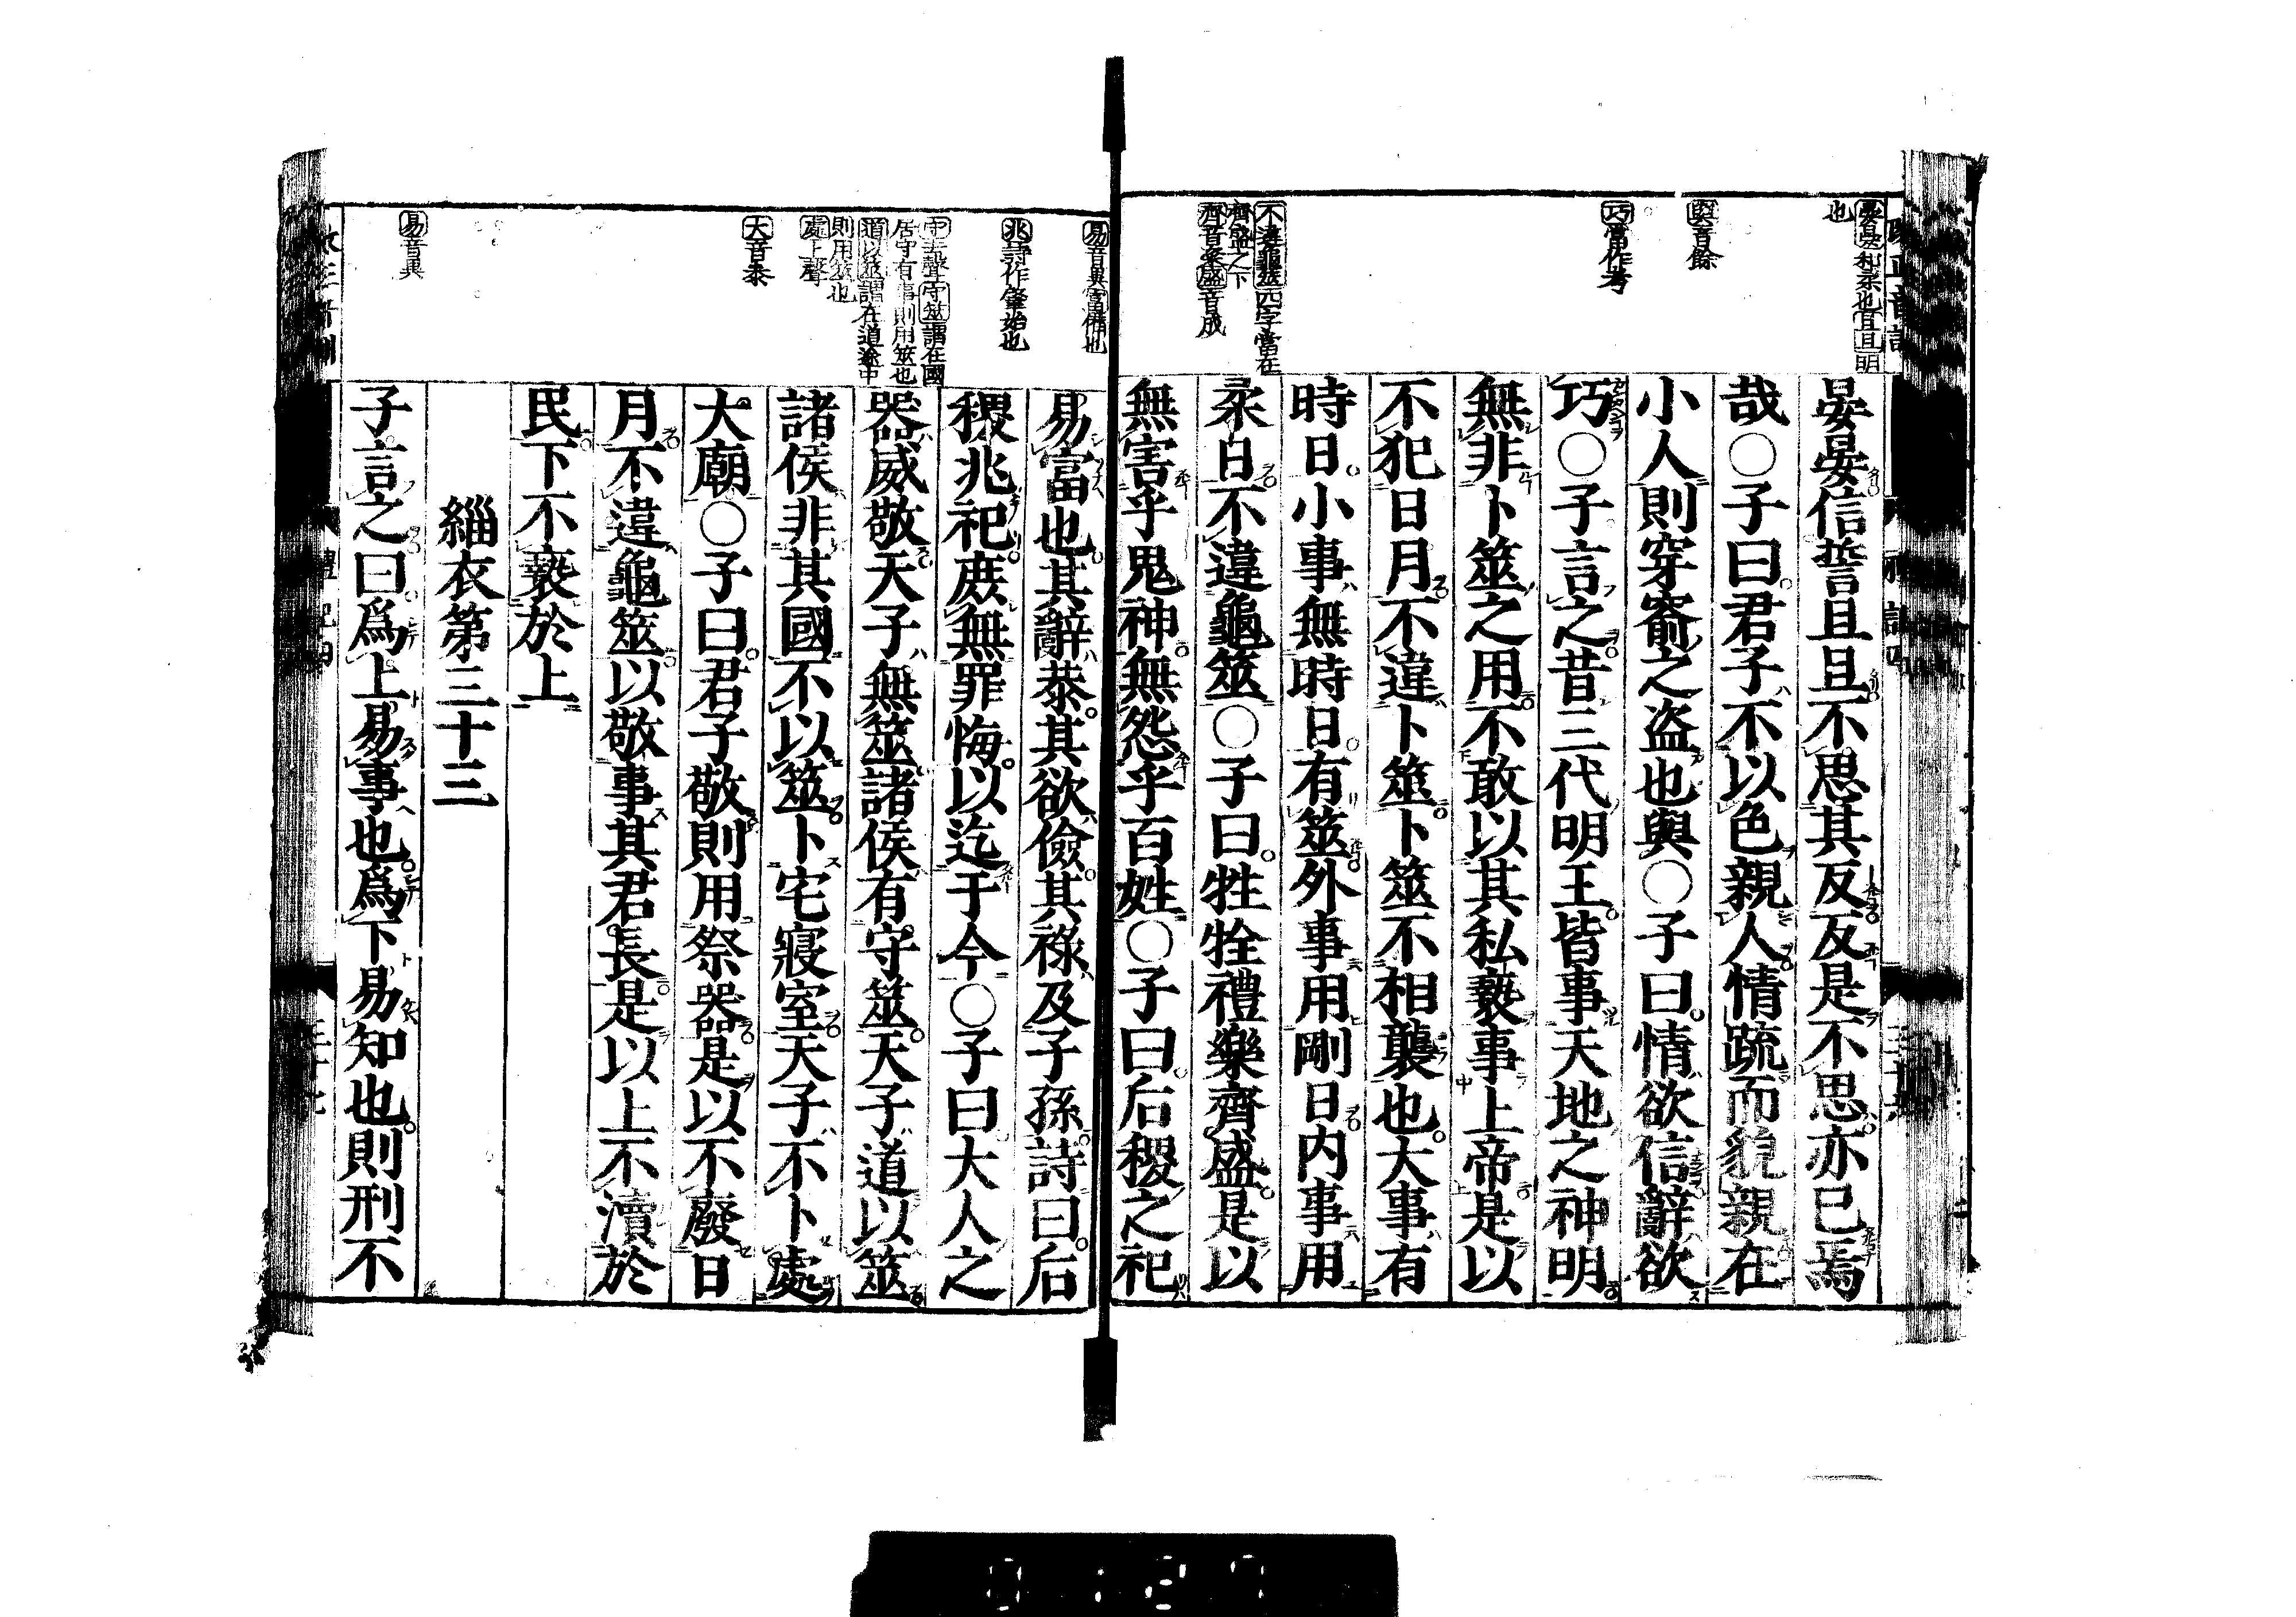 晏晏信誓且且不思其反反是不思亦已焉
哉○子曰君子不以色親人情疏而貌親在
小人則穿窬之盜也與○子曰情欲信辭欲
巧○子言之昔三代明王皆事天地之神明
無非卜筮之用不敢以其私褻事上帝是以
不犯日月不違卜筮卜筮不相襲也大事有
時日小事無時日有筮外事用剛日內事用
柔日不違龜筮○子曰牲牷禮樂齊盛是以
無害乎鬼神無怨乎百姓○子曰后稷之祀
易富也其辭恭其欲儉其祿及子孫詩曰后
稷兆祀庶無罪悔以迄于今○子曰大人之
器威敬天子無筮諸侯有守筮天子道以筮
諸侯非其國不以筮卜宅寢室天子不卜處
大廟○子曰君子敬則用祭器是以不廢日
月不違龜筮以敬事其君長是以上不瀆於
民下不褻於上
緇衣第三十三
子言之曰爲上易事也爲下易知也則刑不
晏晏和柔也且且明
也
與音餘
巧當作考
不違龜筮四字當在
齊盛之下
齊音粢盛音成
易音異富備也
兆詩作肇始也
守去聲守筮謂在國
居守有事則用筮也
道以筮謂在道途中
則用筮也
處上聲
大音泰
易音異